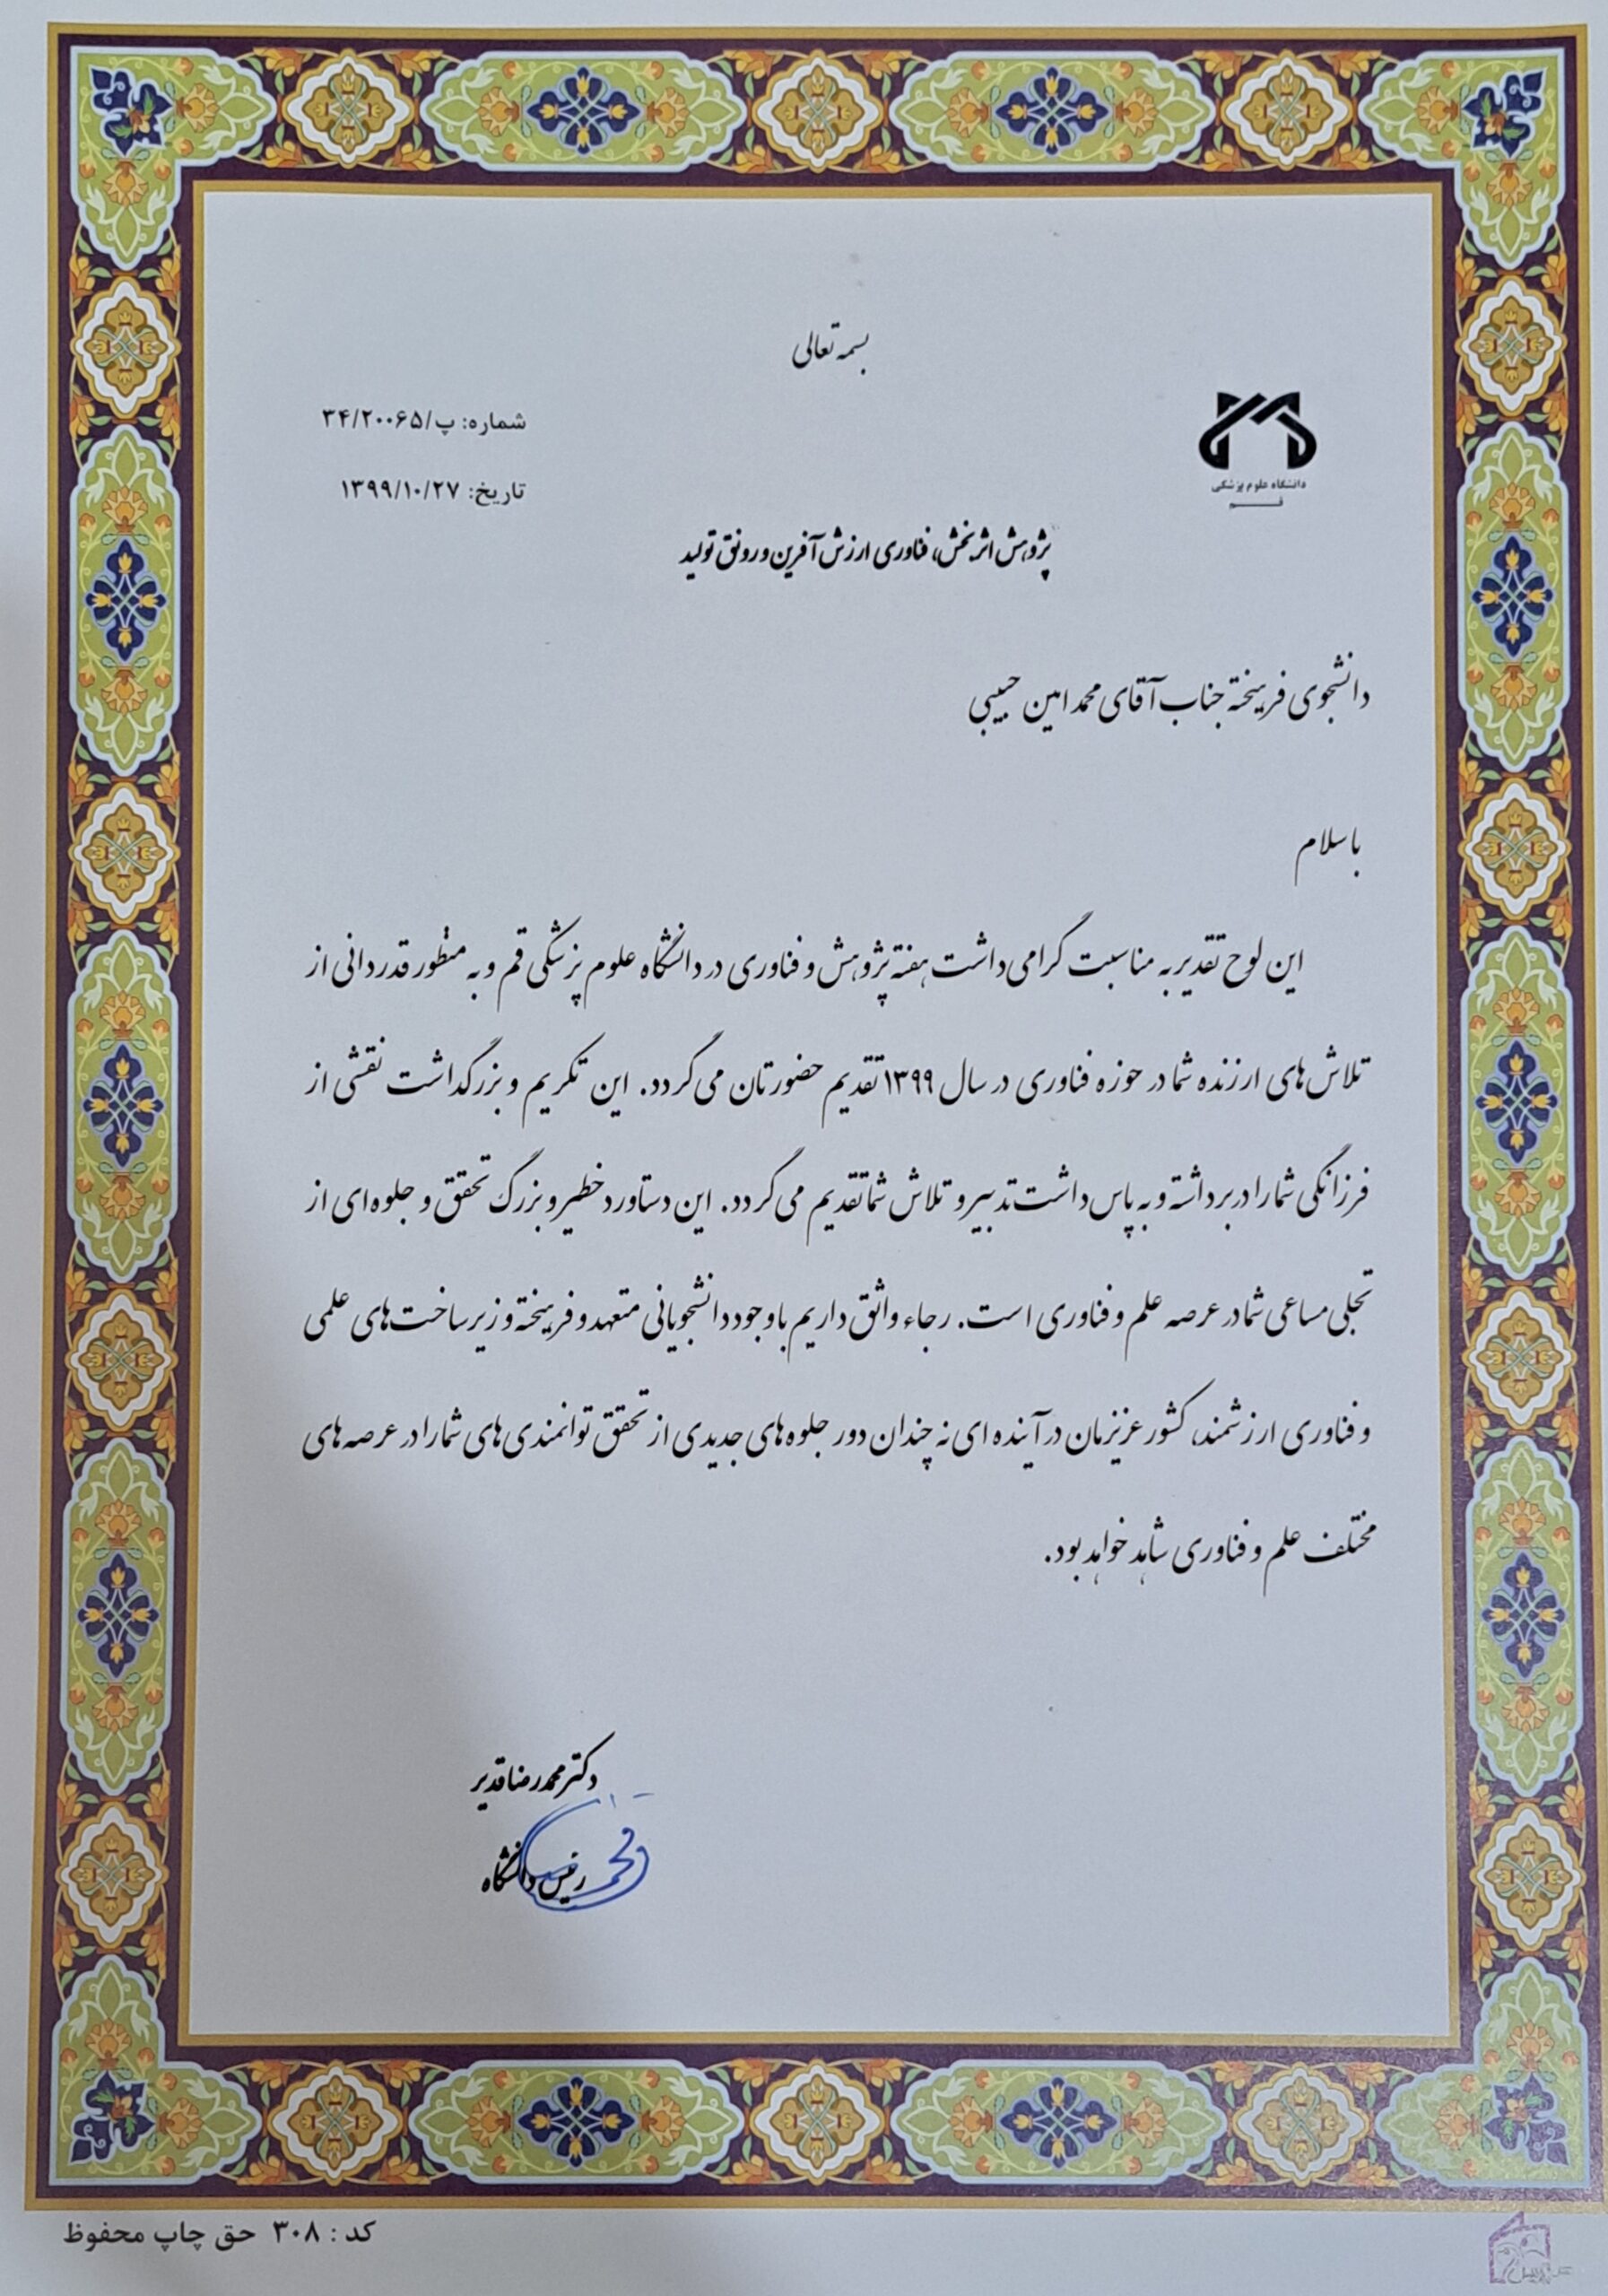 بسمه تعالی
دانشگاه علوم پزشکی
قم
شماره: پ/۳۴/۲۰۰۶۵
تاریخ: ۱۳۹۹/۱۰/۲۷
پژوهش اثربخش، فناوری ارزش آفرین و رونق تولید
دانشجوی فرهیخته جناب آقای محمد امین حبیبی
با سلام
این لوح تقدیر به مناسبت گرامی داشت هفته پژوهش و فناوری در دانشگاه علوم پزشکی قم و به منظور قدردانی از
تلاش های ارزنده شما در حوزه فناوری در سال ۱۳۹۹ تقدیم حضورتان می گردد. این تکریم و بزرگداشت نقشی از
فرزانگی شما را در برداشته و به پاس داشت تدبیر و تلاش شما تقدیم می گردد. این دستاورد خطیر و بزرگ تحقق و جلوه ای از
تجلی مساعی شما در عرصه علم و فناوری است. رجاء واثق داریم با وجود دانشجویانی متعهد و فرهیخته و زیرساخت های علمی
و فناوری ارزشمند، کشور عزیزمان در آینده ای نه چندان دور جلوه های جدیدی از تحقق توانمندی های شما را در عرصه های
مختلف علم و فناوری شاهد خواهد بود.
دکتر محمدرضا قدیر
رئیس دانشگاه
کد : ۳۰۸ حق چاپ محفوظ